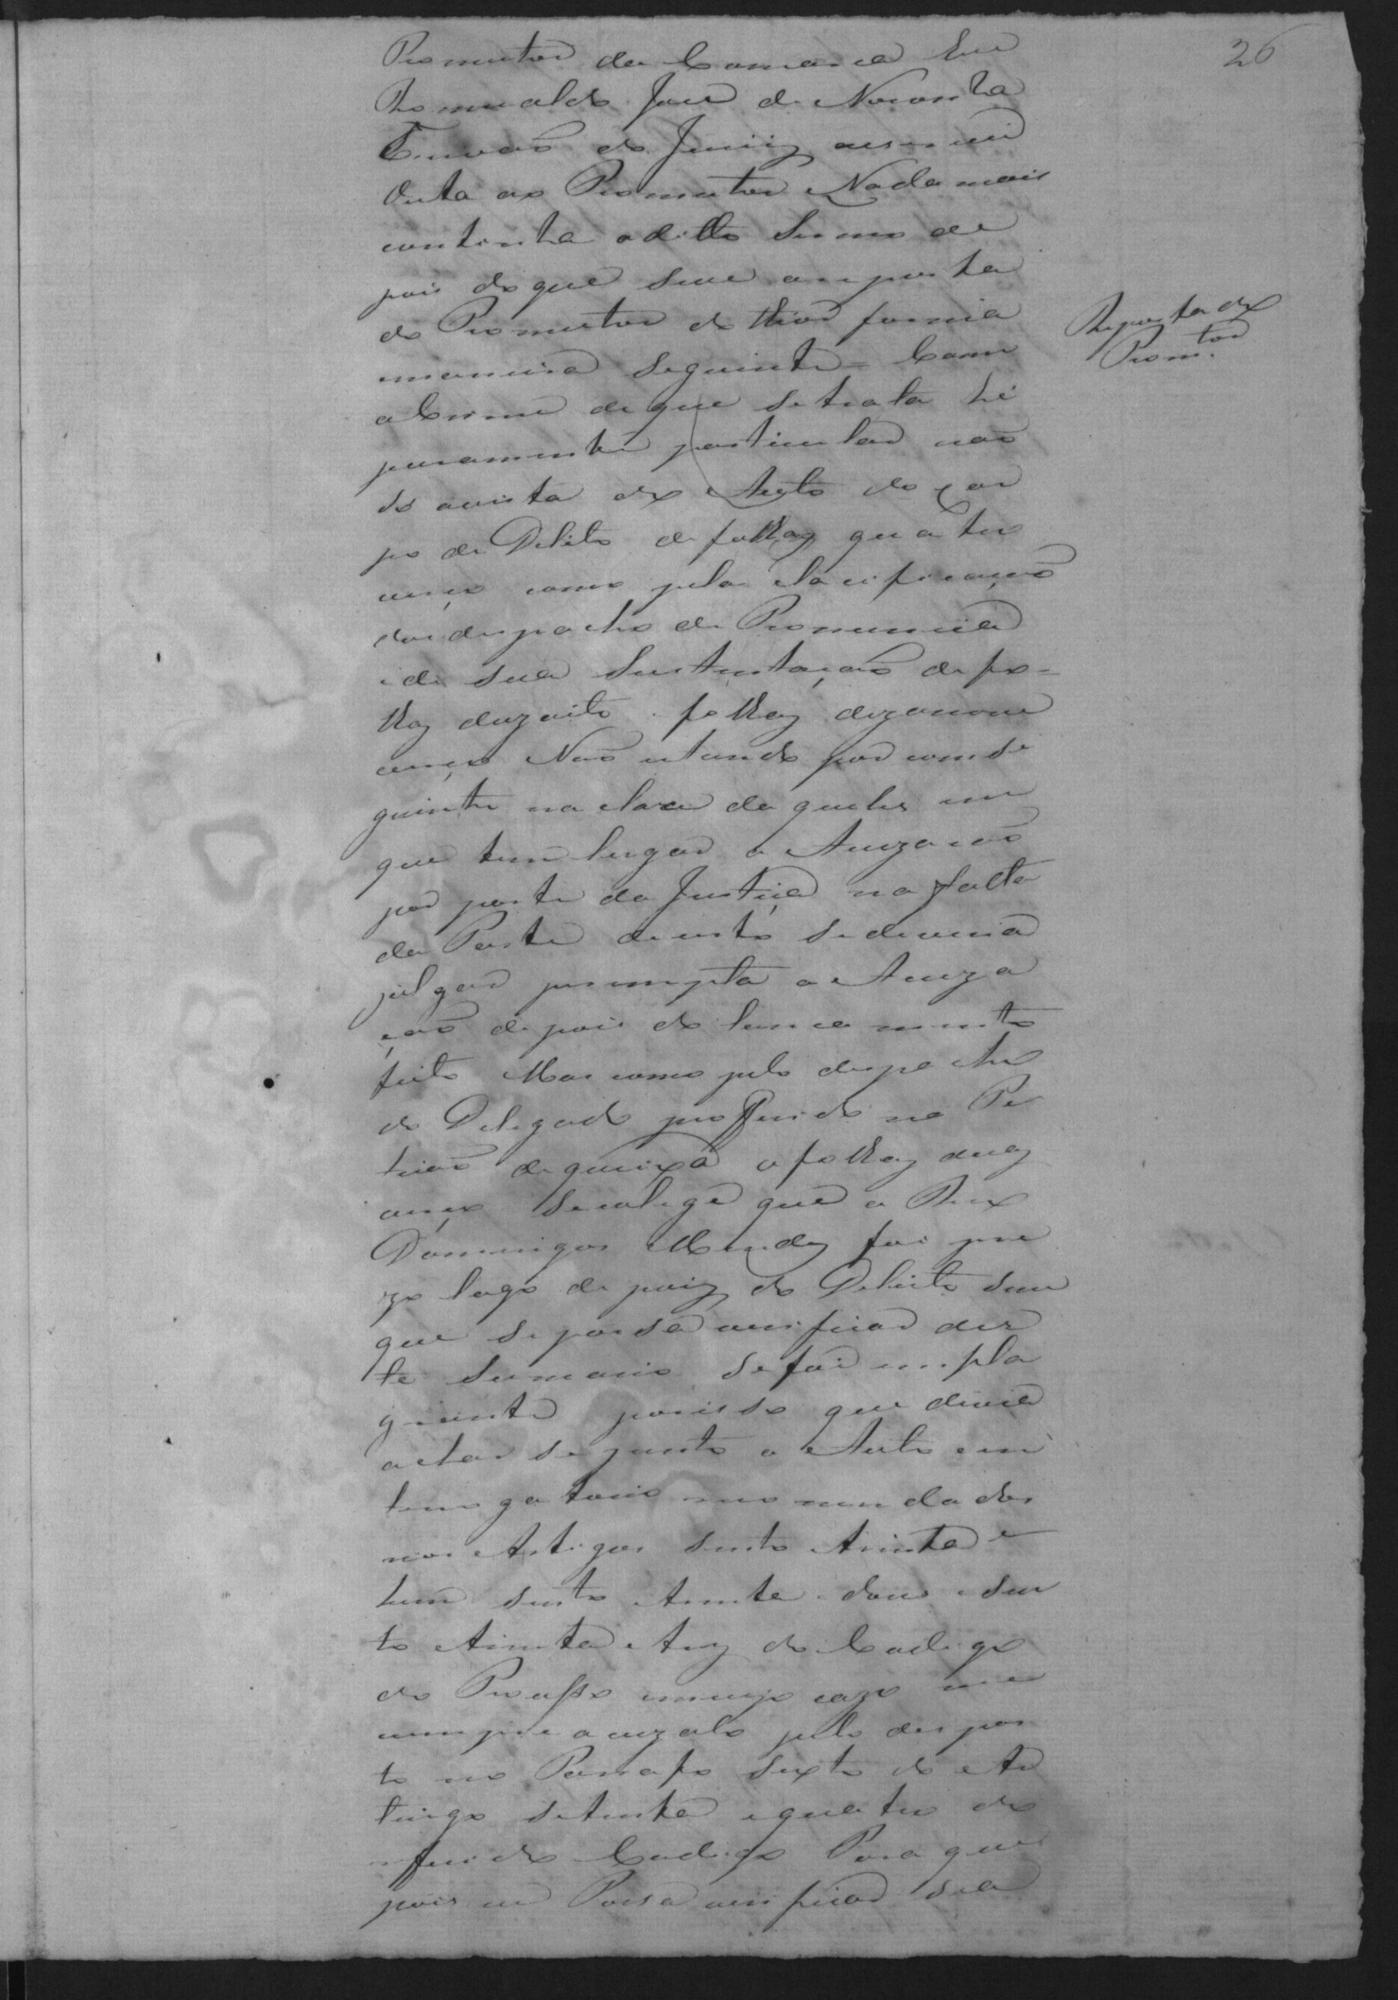 26
Promutor da Comarca Eu
Romualdo Jose de Noronha
Escrivão do Juiz
Vista ao Promutor Nada mais
continha o ditto termo de
pois do que se ve a reposta
do Promutor do theor forma i a
maneira seguinte = Como
Reposta do
Promtor
o Crime de que se trata hé
puramente particular não
só avista do Auto de Cor
po de Delito de folhas quatro
verço como pela clacificação
do despacho de Pronuncia
e de sua Sustentação de fo=
lhas dezoito e folhas dezanove
verço Não estando por conse
guinte na clace daqueles em
que tem lugar a Acuzação
por parte da Justiça na falta
da Parte de certo se deveria
julgar perempta a Acuza
ção depois do lançamento
feito Mas como pelo despacho
do Delegado profferido na Pe
tição de queixa a folhas duas
verço se colige que o Reo
Domingos Mendes foi pre
zo logo depois do Delicto sem
que se possa verificar des
te Sumario se foi em fla
grante por isso que devia
achar se junto o Auto e in
terrogatorio recomendados
nos Artigos cento trinta e
hum cento trinta e dous e cen
to trinta e tres do Codigo
do Processo em cujo cazo me
cumpre acuzalo pelo dispos
to no Parrafo sexto do Ar
tigo setenta e quatro do re
fferido Codigo Para que
pois se Possa verificar se a